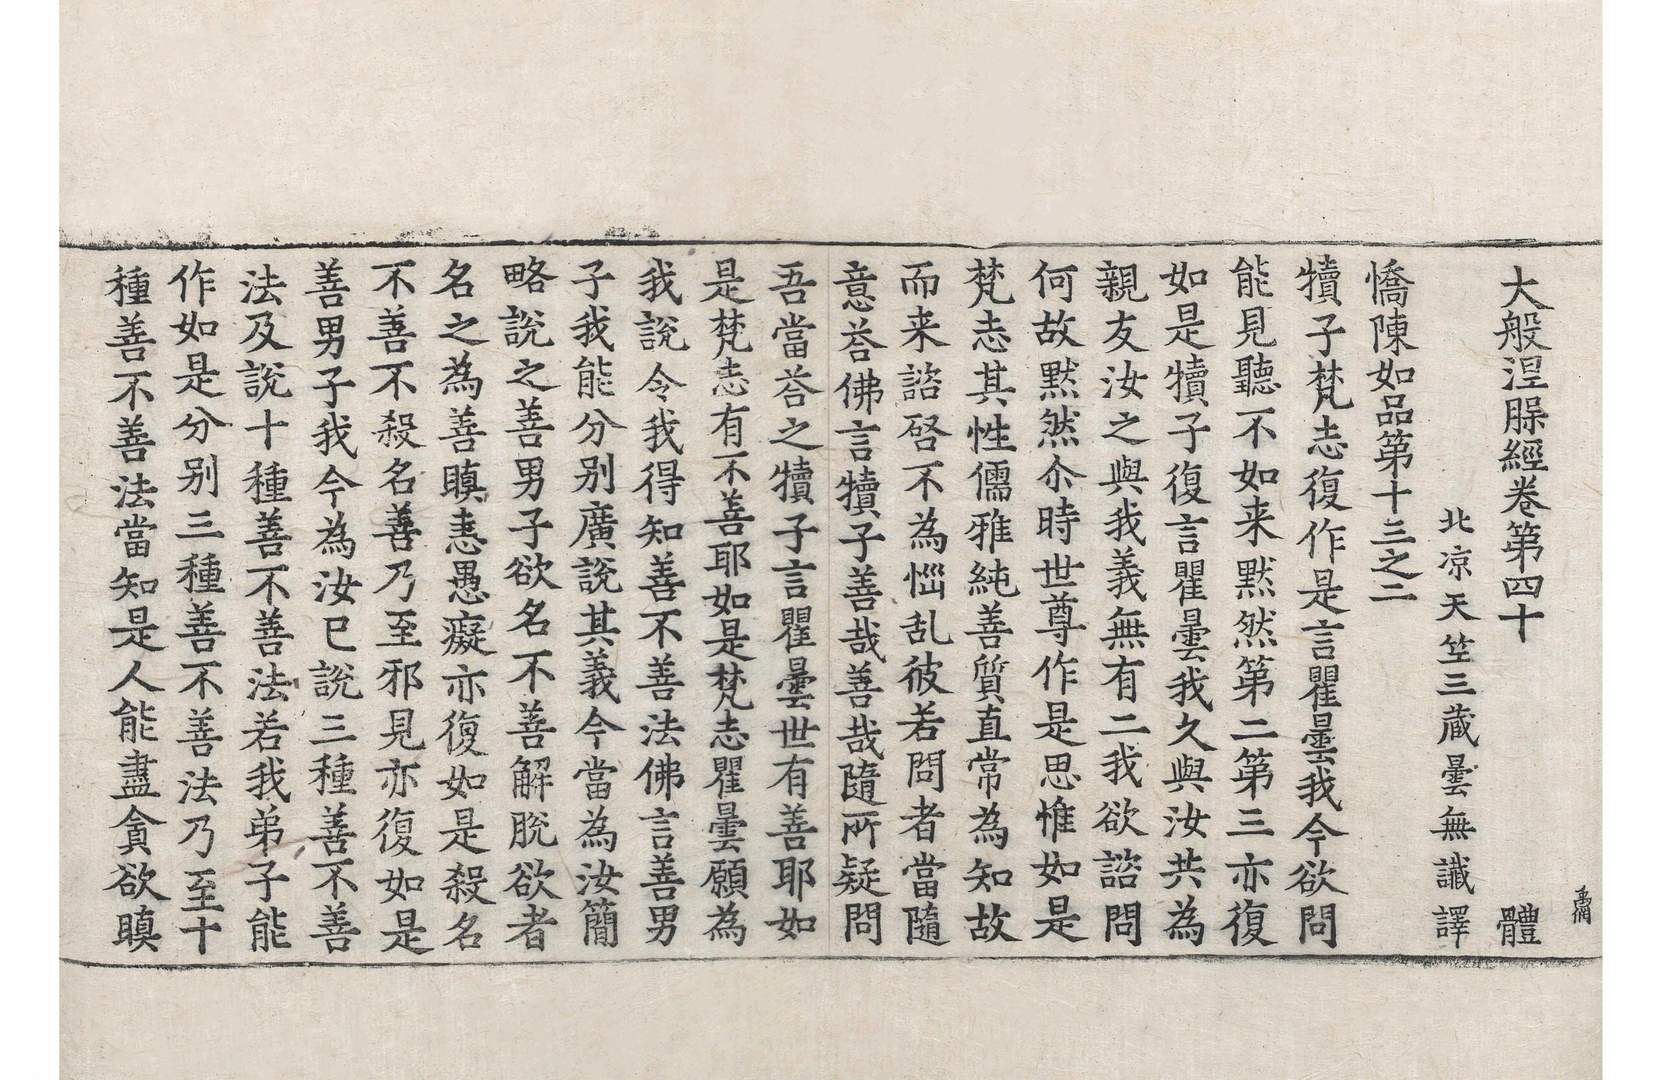 大般涅脵經卷第四十 體
北凉天竺三蔵曇無讖譯
憍陳如品第十三之二
犢子梵志復作是言瞿曇我今欲問
能見聽不如来默然第二第三亦復
如是犢子復言瞿曇我久與汝共為
親友汝之與我義無有二我欲諮問
何故默然尒時世尊作是思惟如是
梵志其性儒雅純善質直常為知故
而来諮啓不為惱乱彼若問者當隨
意荅佛言犢子善哉善哉隨所疑問
吾當荅之犢子言瞿曇世有善耶如
是梵志有不善耶如是梵志瞿曇願為
我說令我得知善不善法佛言善男
子我能分别廣說其義今當為汝簡
略說之善男子欲名不善解脫欲者
名之為善瞋恚愚癡亦復如是殺名
不善不殺名善乃至邪見亦復如是
善男子我今為汝已說三種善不善
法及說十種善不善法若我弟子能
作如是分别三種善不善法乃至十
種善不善法當知是人能盡貪欲瞋